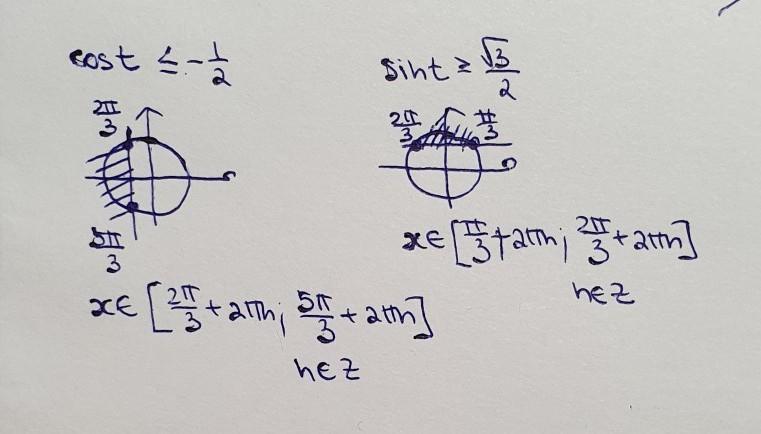 cost ≤ -1/2
2π/3
5π/3
x∈[2π/3+2πn; 5π/3+2πn]
n∈Z
sint ≥ √3/2
2π/3 π/3
x∈[π/3+2πn; 2π/3+2πn]
n∈Z